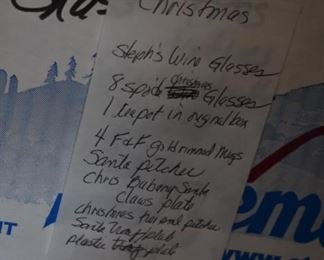 Christmas
Steph's Wine Glasses
8 Spode Christmas Glasses
1 teapot in original box
4 F&F gold rimmed mugs
Santa pitcher
Chris Santa
Claus plate
christmas pitcher
Santa plate
plastic plate
NT
em
www.